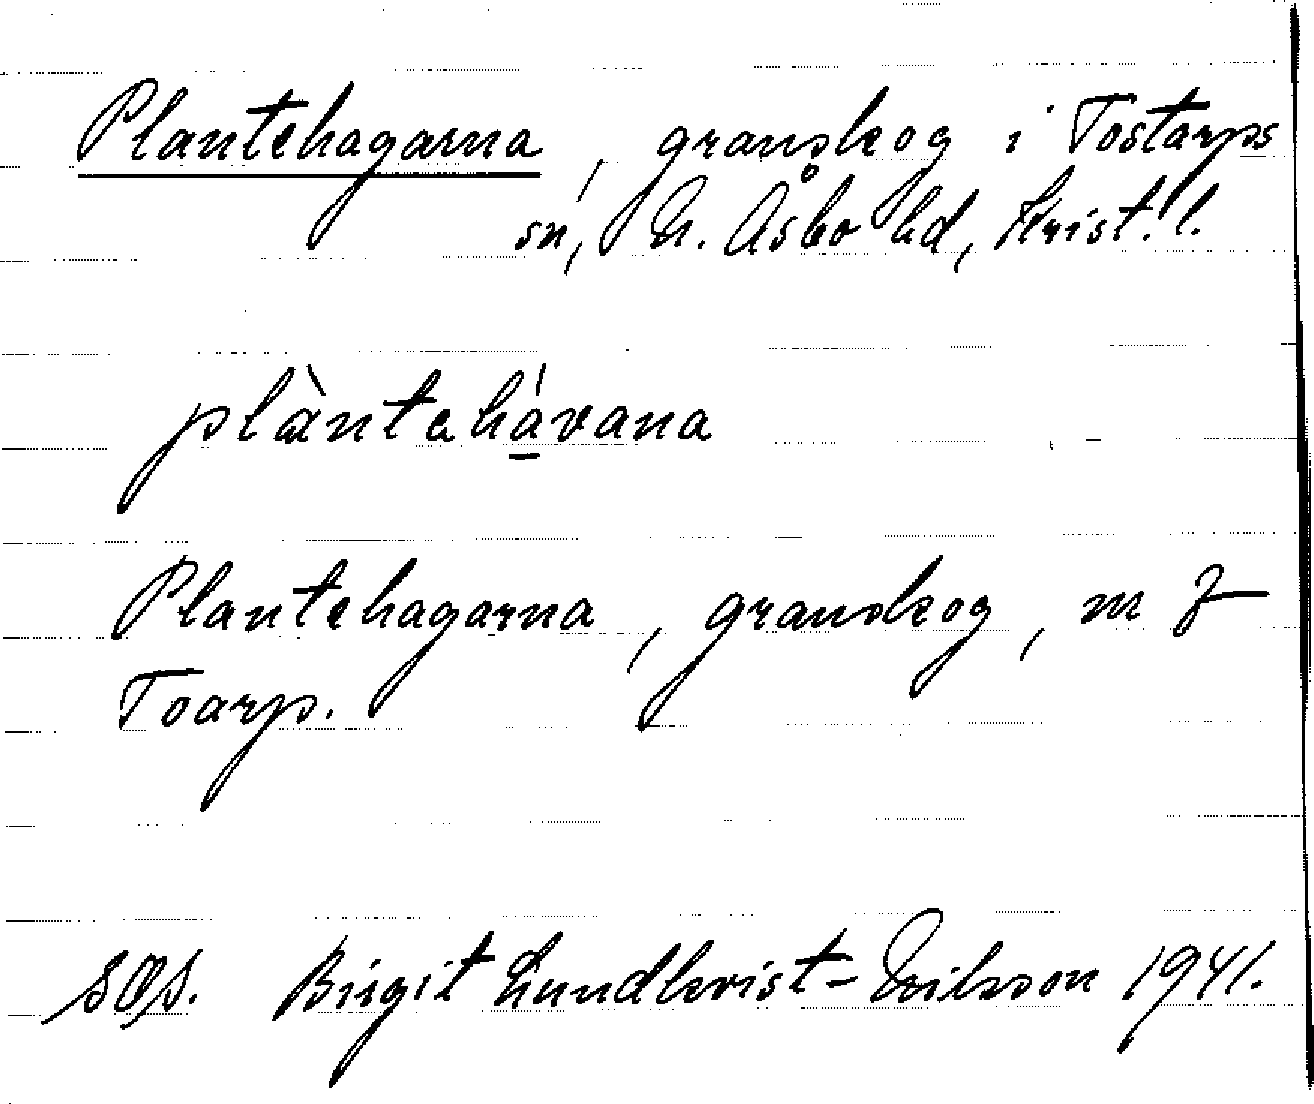 Plantehagarna, granskog i Tostarps
sn, N. Åsbo hd, Krist. l.
plàntahávana
Plantehagarna, granskog, m
Toarp.
Birgit Lundkvist-Nilsson 1941.